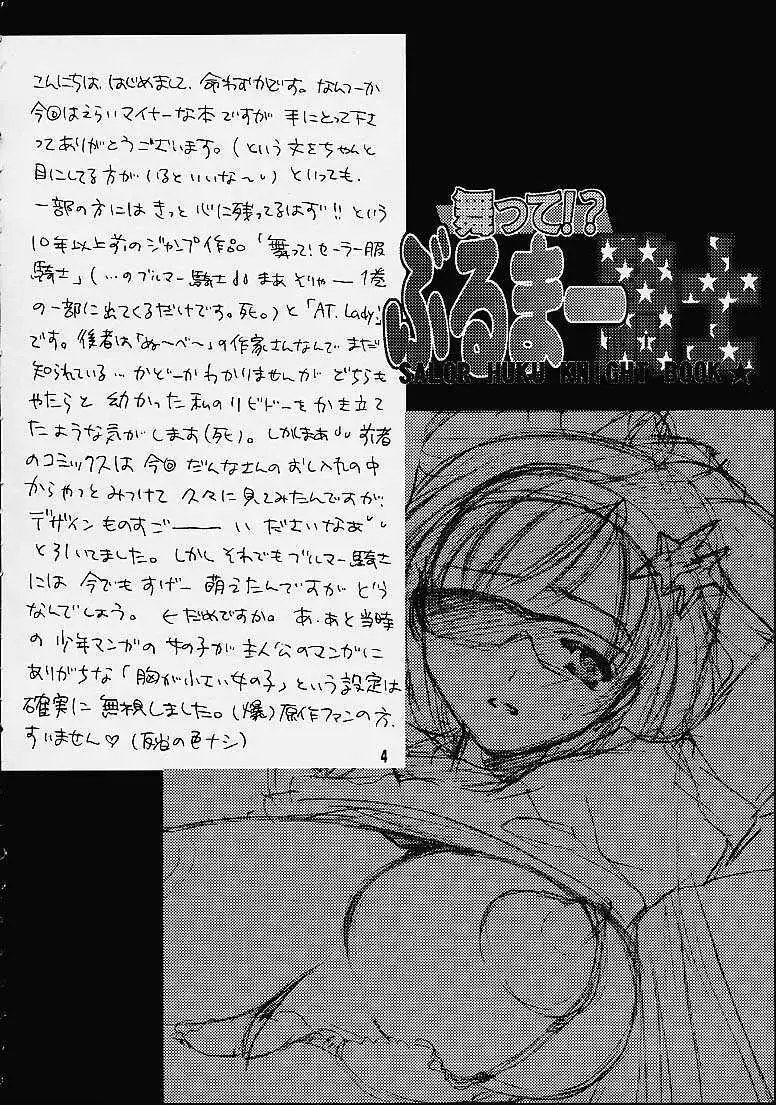 こんにちは、はじめまして、命わずかです。なんつーか
今回はえらいマイナーな本ですが 手にとって下さ
ってありがとうございます。(という文をちゃんと
目にしてる方が いるといいな〜い) といっても、
一部の方には きっと 心に残ってるはず!! という
10年以上前のジャンプ作品「舞って!セーラー服
騎士」(…のブルマー騎士 まあ そりゃー 1巻
の一部に出てくるだけです。死。)と「AT. Lady」
です。後者は「ぬ〜べ〜」の作家さんなんで まだ
知られている… かどーか わかりませんが どちらも
やたらと 幼かった 私のリビドーをかき立て
たような気がします(死)。しかしまあ 前者
のコミックスは 今回 だんなさんの おし入れの中
からやっとみつけて 久々に見てみたんですが、
デザイン ものすごーーー い ださいなあ
とろいてました。しかし それでも ブルマー騎士
には 今でも すげー 萌えたんですが どう
なんでしょう。 ←だめですか。 あ、あと 当時
の 少年マンガの 女の子が 主人公のマンガに
ありがちな「胸が小さい女の子」という設定は
確実に 無視しました。(爆) 原作ファンの方、
すいません♡ (反省の色ナシ)
4
舞って!?
ぶるまー騎士
SALOR HUKU KNIGHT BOOK ★